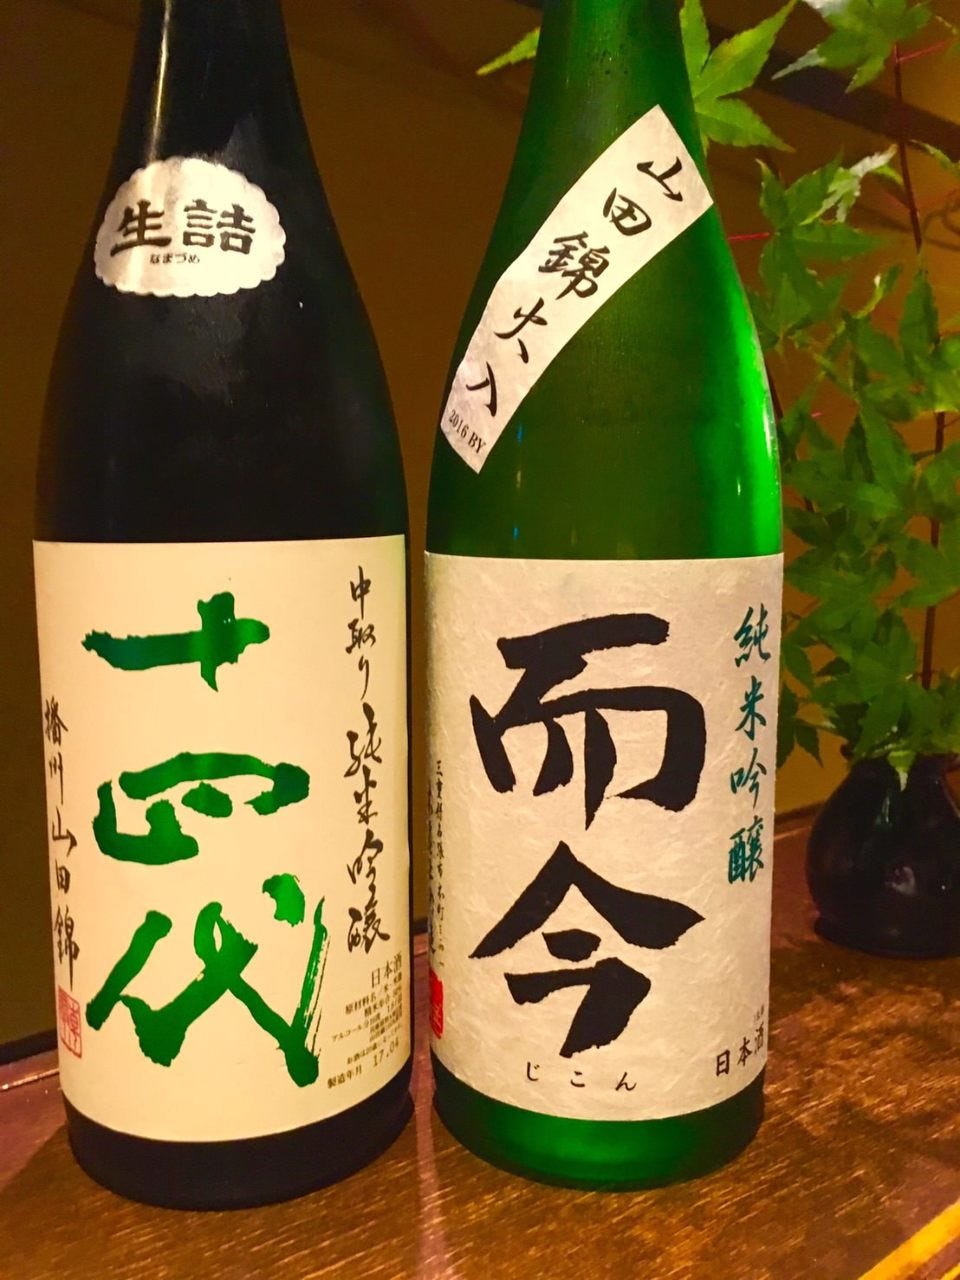 生詰
なまづめ
中取り純米吟醸
十四代
播州山田錦
日本酒
製造年月 17.04
山田錦火入
2016 BY
純米吟醸
而今
じこん
日本酒